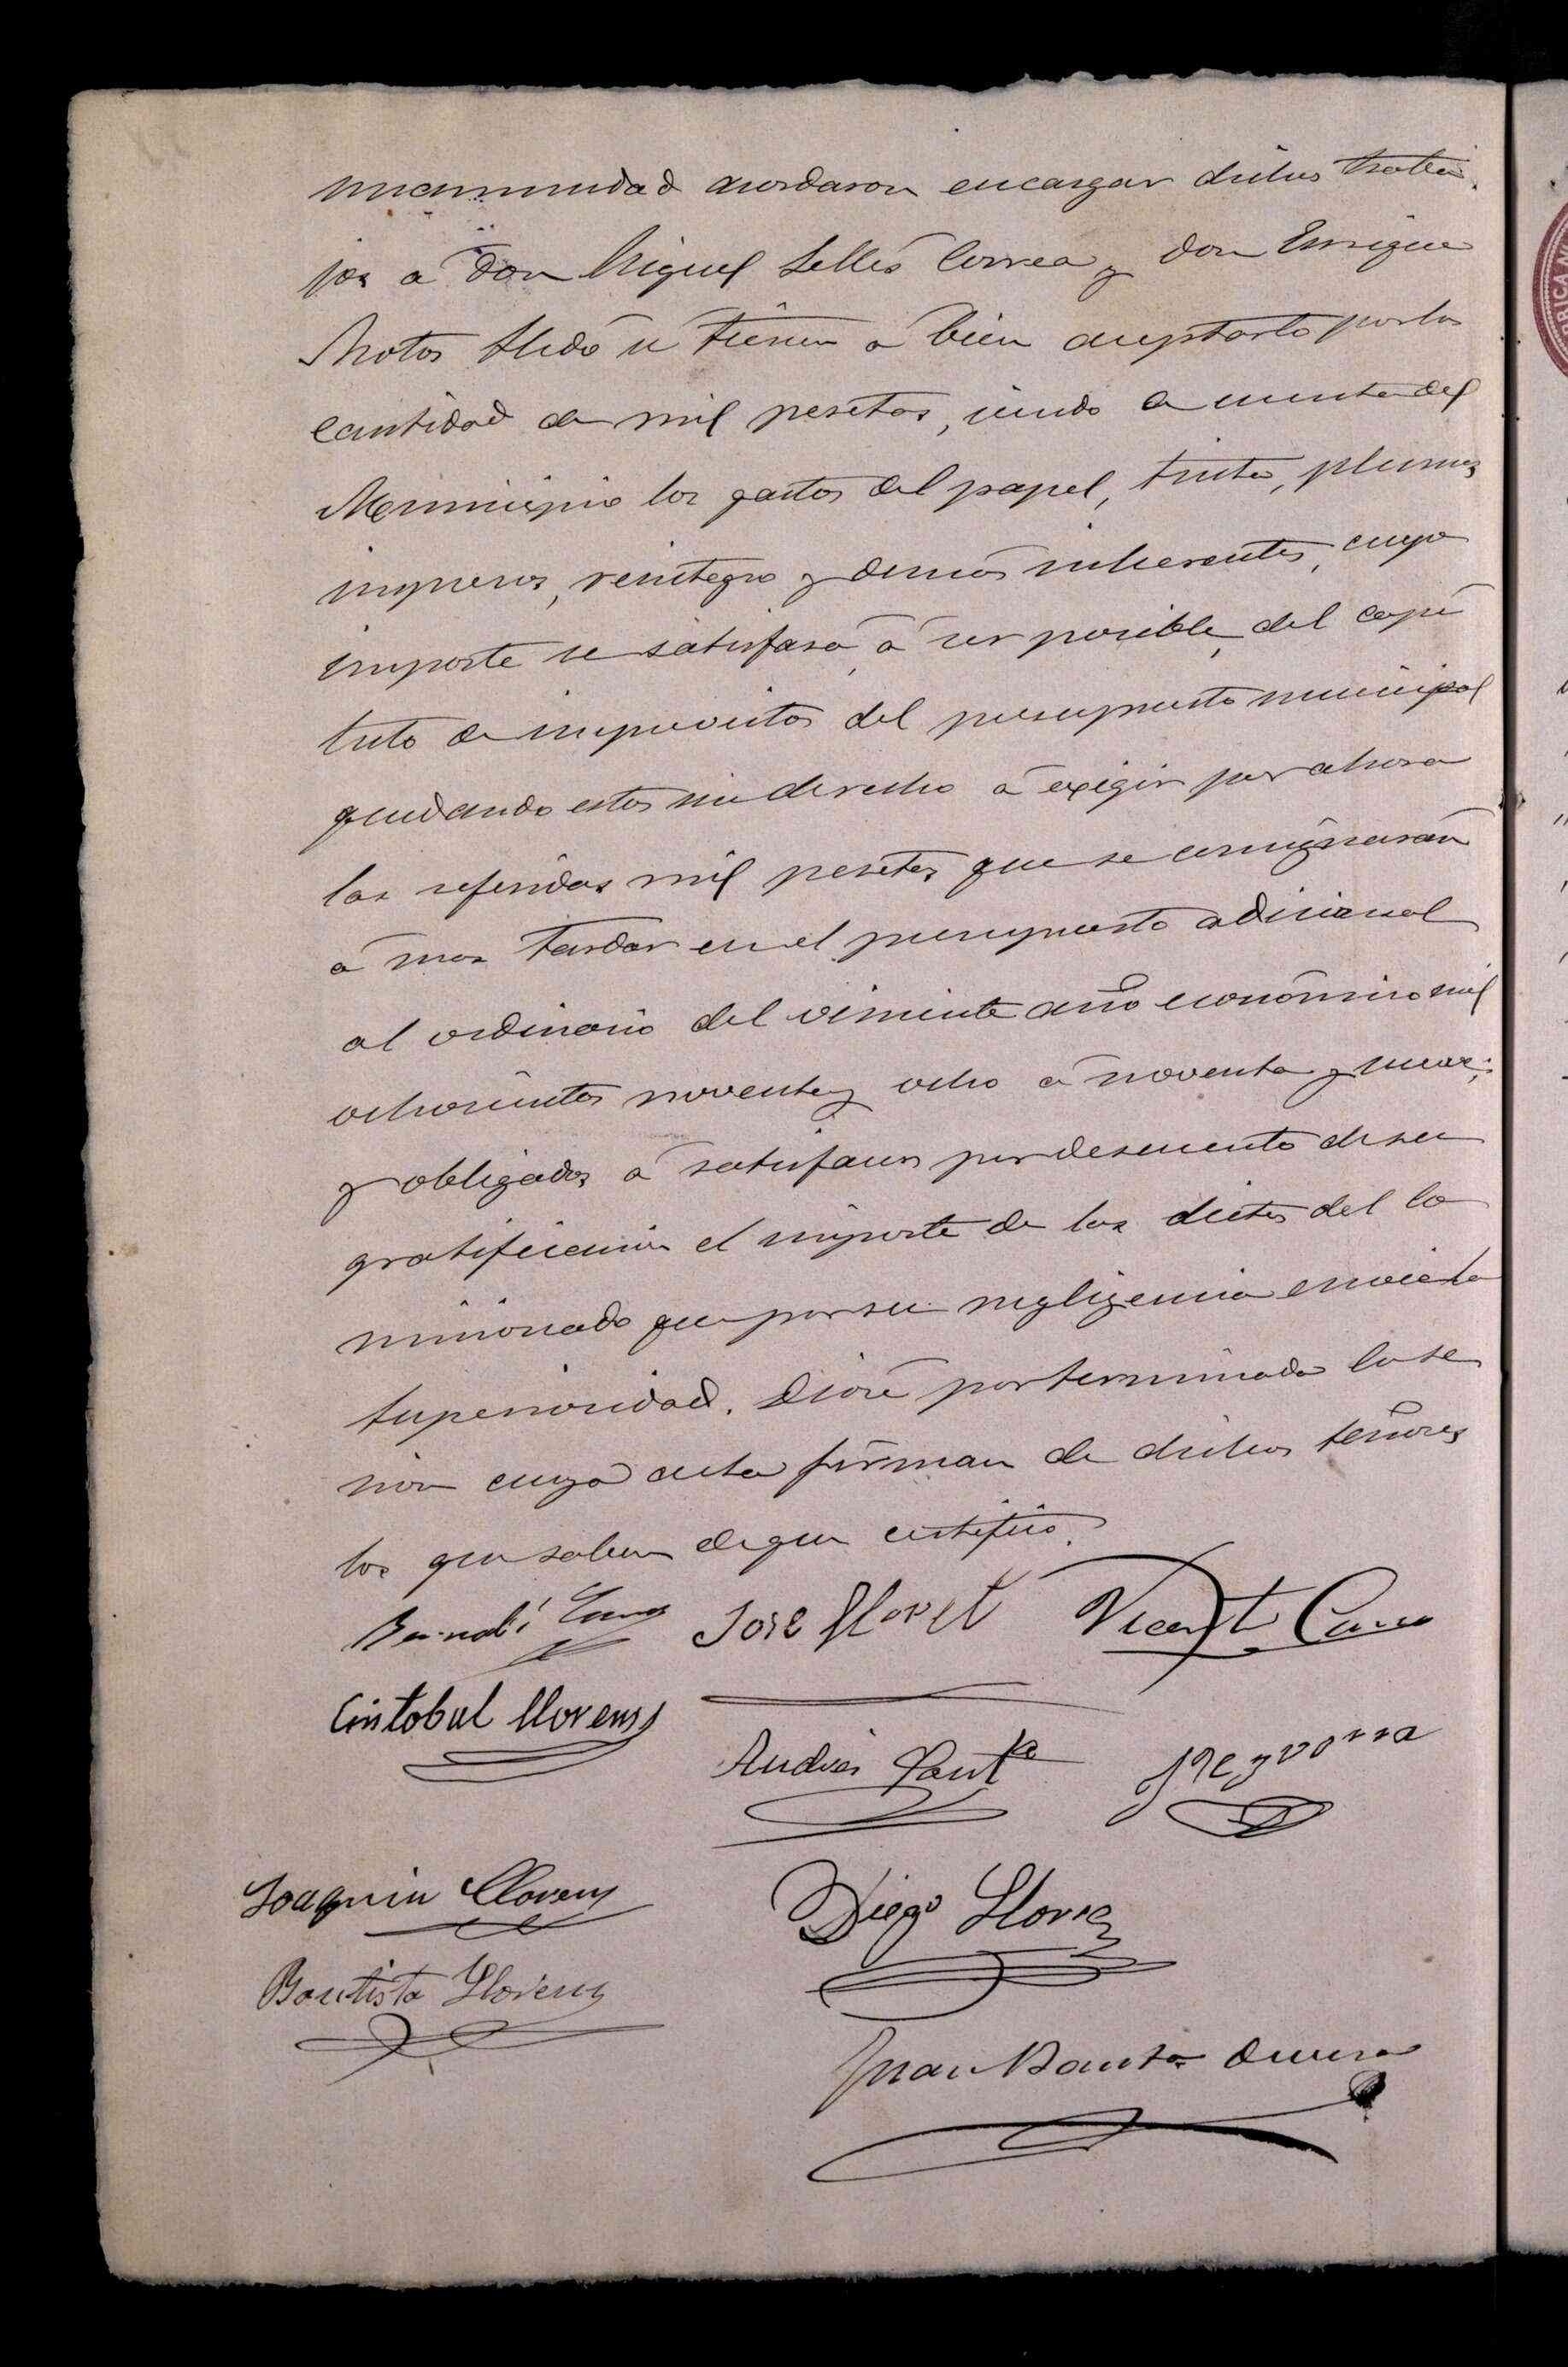 nimidad acordaron encargar dichos traba-
jos a don Miguel Sellés Correa y don Enrique
Motos Lledó si tienen á bien aceptarlo por la
cantidad de mil pesetas, siendo a cuenta del
Municipio los gastos del papel, tinta, plumas
impresos, reintegro y demás inherentes, cuyo
importe se satisfará, á ser posible, del capi
tulo de imprevistos del presupuesto municipal
quedando estos sin derecho á exigir por ahora
las referidas mil pesetas que se consignarán
á mas tardar en el presupuesto adicional
al ordinario del viniente año económico mil
ochocientos noventa y ocho á noventa y nueve;
y obligados á satisfacer por descuento de su
gratificacion el importe de las dietas del co
misionado que por su negligencia envie la
superioridad. Dióse por terminada la se
sion cuya acta firman de dichos señores
los que saben de que certifico.
Bernabé José Lloret Vicente
Cristobal Llorens
Andrés
Joaquin Llorens Diego Llorca
Bautista Llorens
Juan Bauta